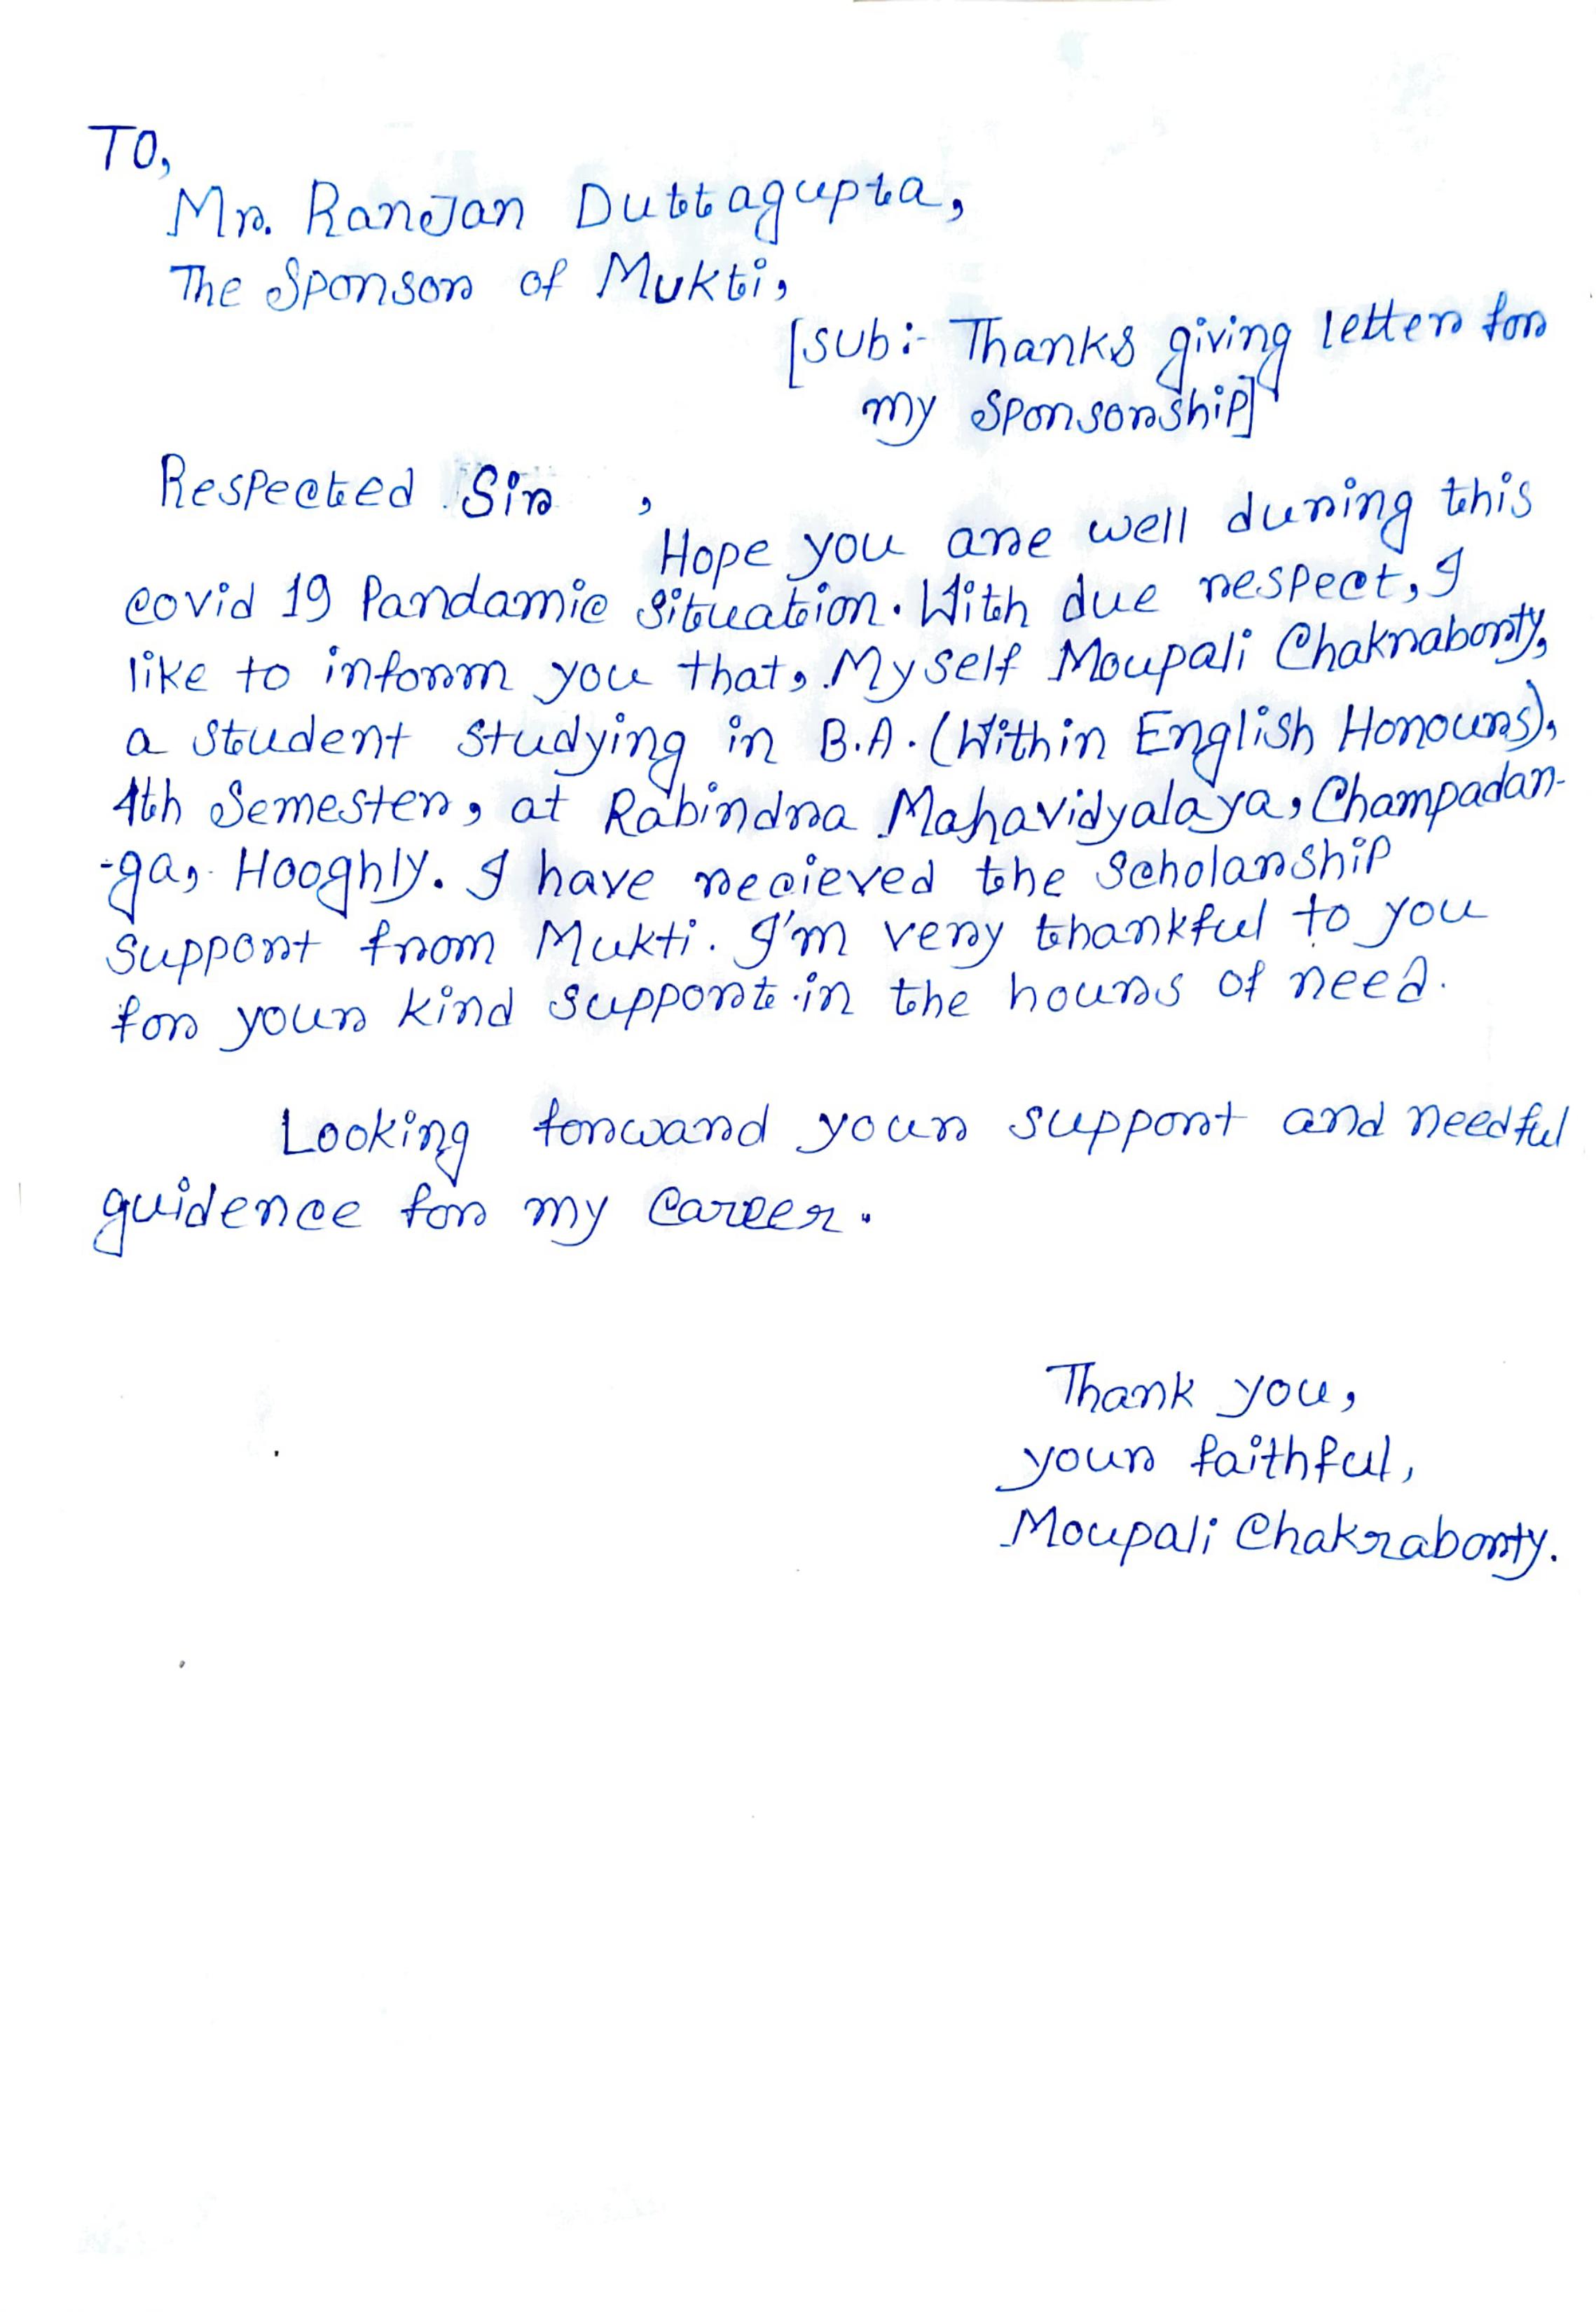 TO,
Mr. Ranjan Duttagupta,
The Sponsor of Mukti,
[Sub:- Thanks giving letter for
my sponsorship]
Respected Sir,
Hope you are well during this
covid 19 Pandamic situation. With due respect, I
like to inform you that, Myself Moupali Chakraborty,
a student studying in B.A. (Within English Honours),
4th Semester, at Rabindra Mahavidyalaya, Champadan-
-ga, Hooghly. I have recieved the Scholarship
support from Mukti. I'm very thankful to you
for your kind support in the hours of need.
Looking forward your support and needful
guidence for my career.
Thank you,
your faithful,
Moupali Chakraborty.